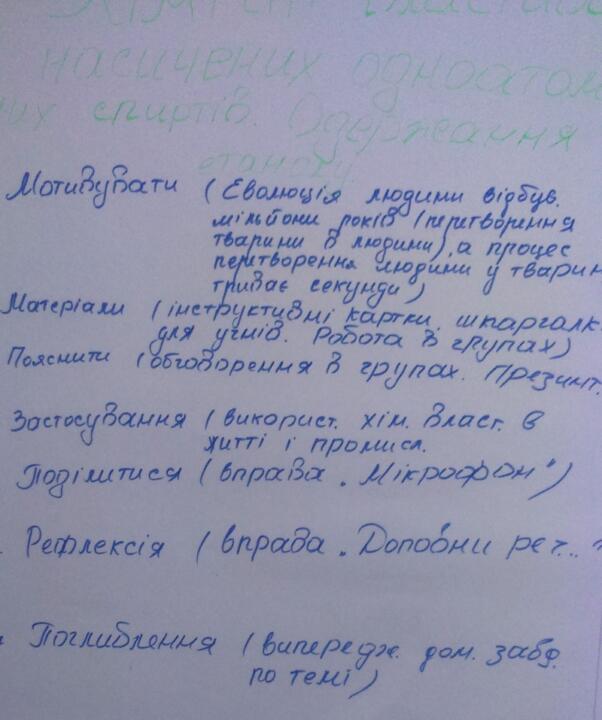 Хімічні властив
насичених одноатом
них спиртів. Одержання
етанолу.
Мотивувати (Еволюція людини відбув.
мільйони років (перетворення
тварини в людини), а процес
перетворення людини у тварин
триває секунди)
Матеріали (інструктивні картки, шпаргалк
для учнів. Робота в групах)
Пояснити (обговорення в групах. Презинт.
Застосування (використ. хім. власт. в
житті і промисл.
Поділитися (вправа „Мікрофон")
Рефлексія (вправа „Доповни реч..."
Поглиблення (випередж. дом. завд.
по темі)